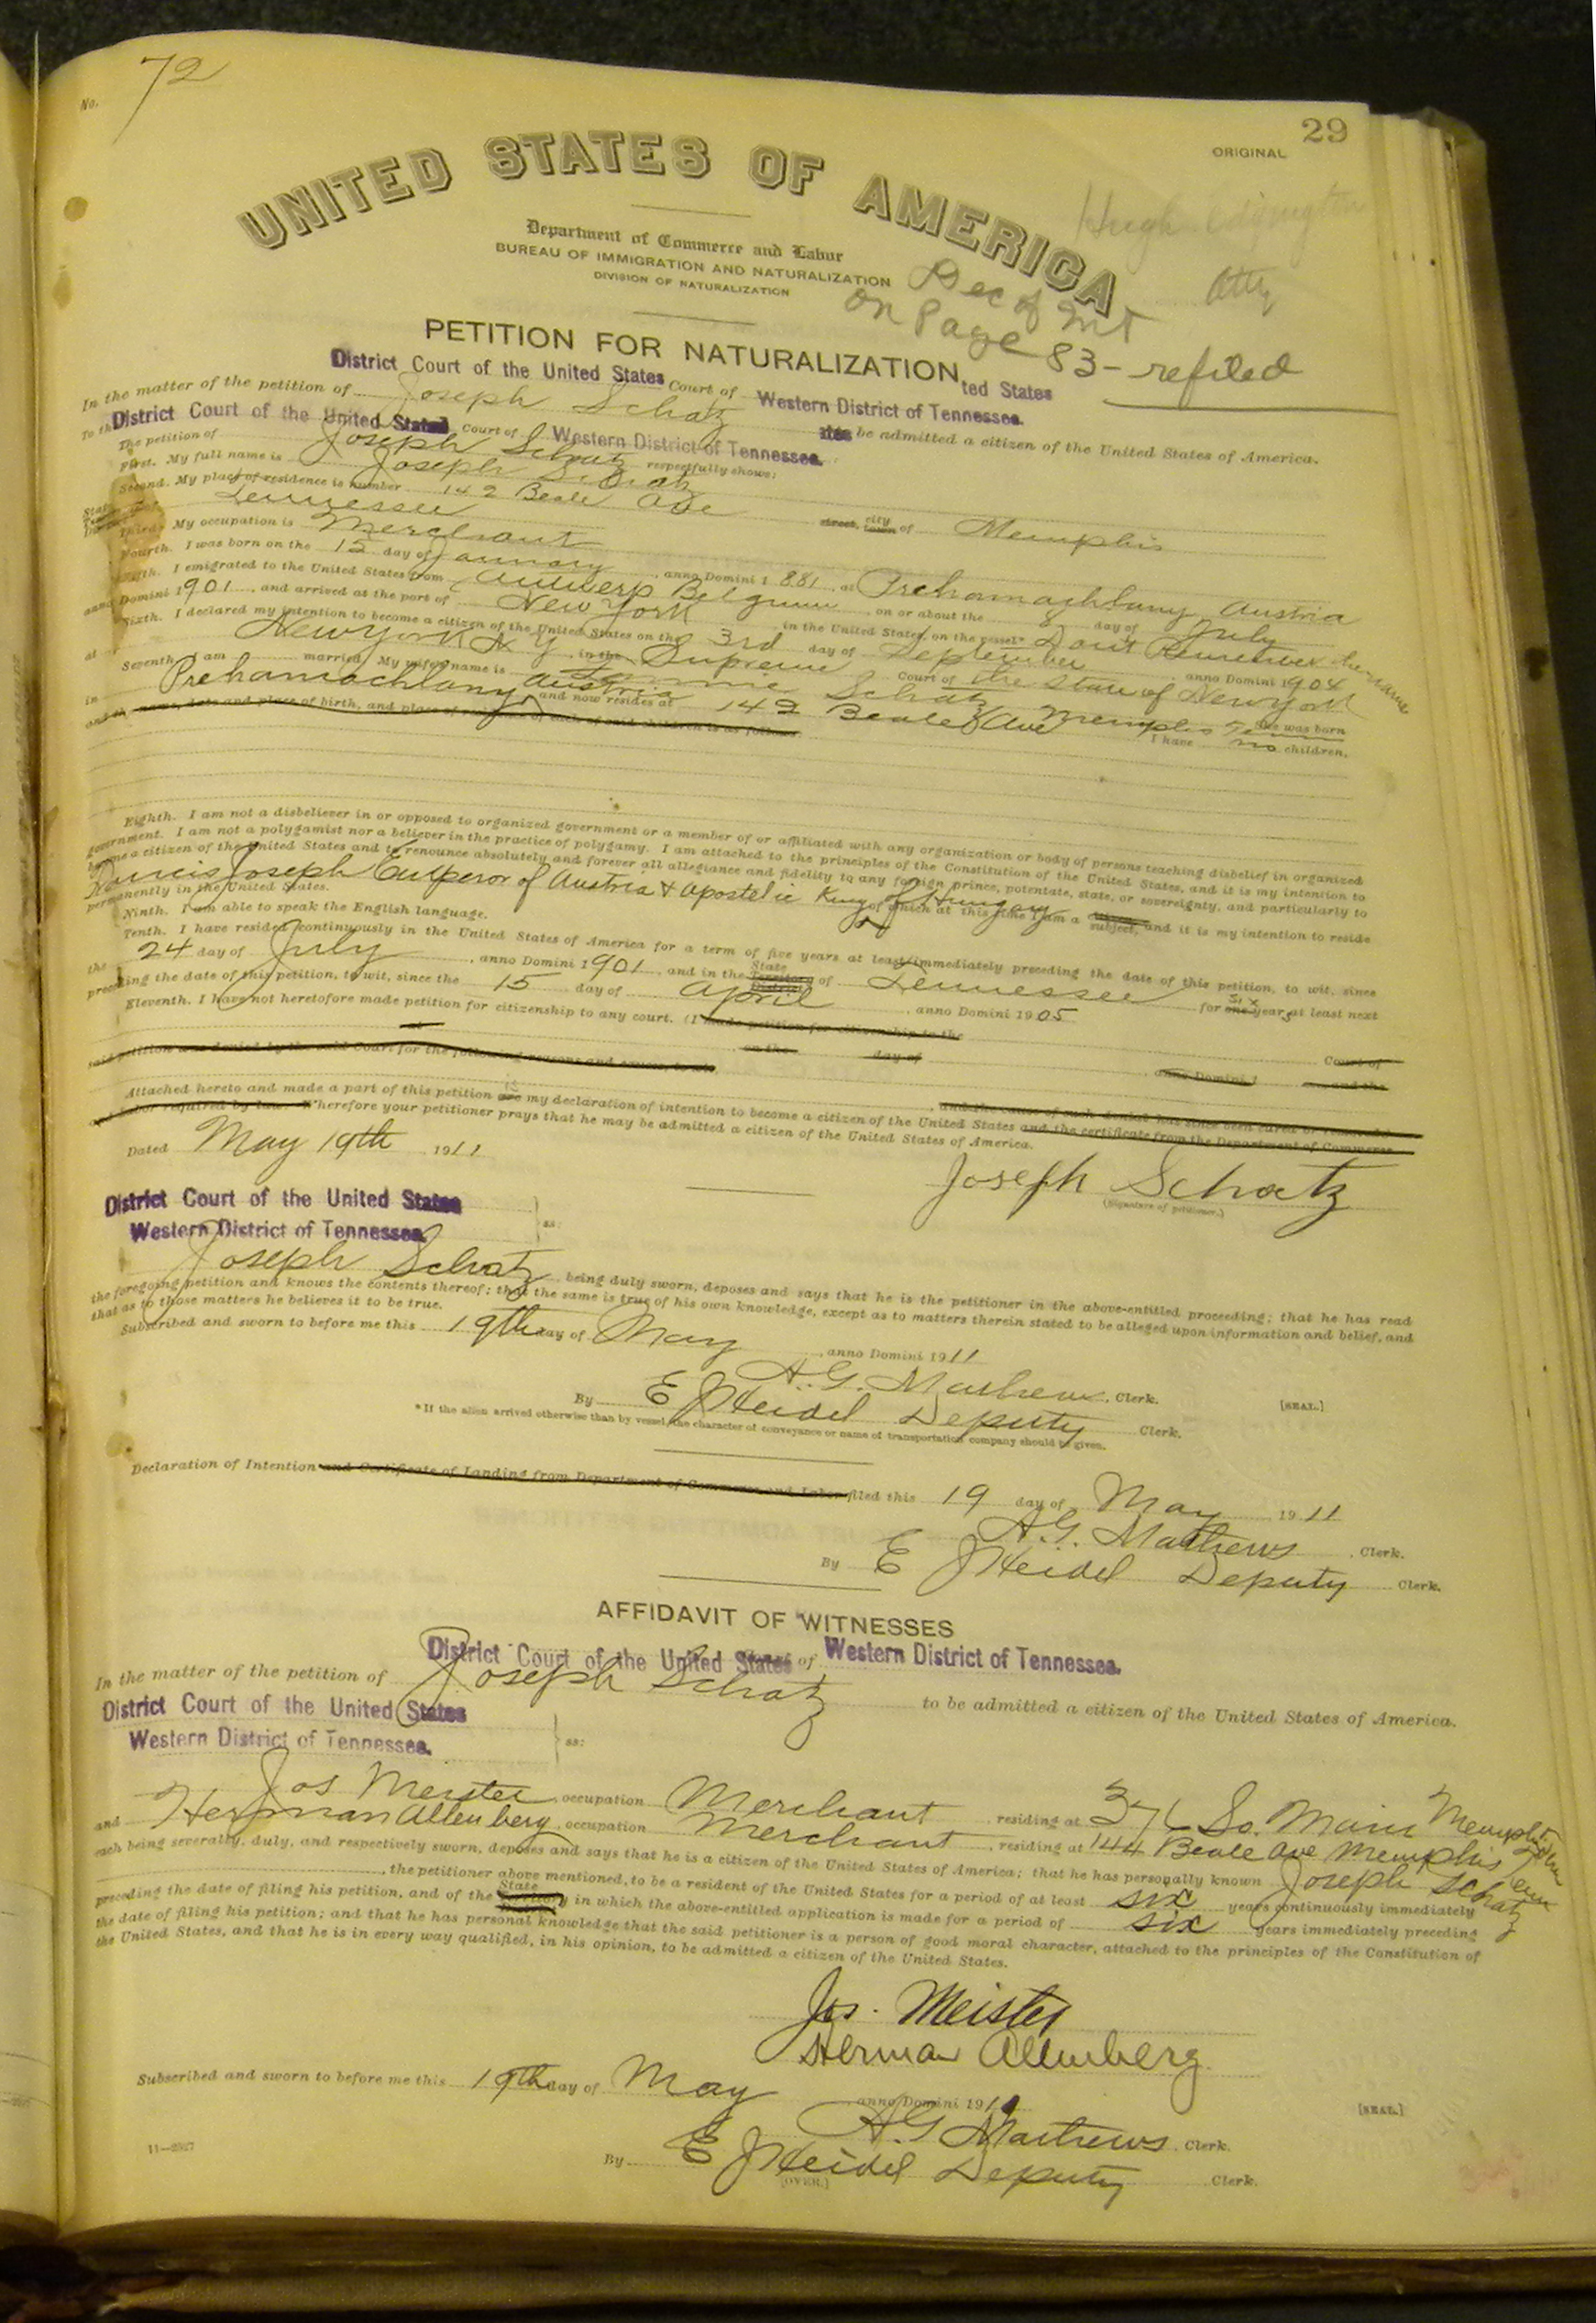 No. 72
29
ORIGINAL
UNITED STATES OF AMERICA
Hugh
Atty
Department of Commerce and Labor
BUREAU OF IMMIGRATION AND NATURALIZATION
DIVISION OF NATURALIZATION
Dec of Int
on Page 83 - refiled
PETITION FOR NATURALIZATION
District Court of the United States Court of Western District of Tennessee.
ted States
In the matter of the petition of Joseph Schatz to be admitted a citizen of the United States of America.
To the District Court of the United States Court of Western District of Tennessee.
The petition of Joseph Schatz respectfully shows:
First. My full name is Joseph Schatz
Second. My place of residence is number 142 Beale Ave street, city town of Memphis
State Tennessee
Third. My occupation is Merchant
Fourth. I was born on the 15 day of January, anno Domini 1881, at Prehamachlany Austria
Fifth. I emigrated to the United States from Antwerp Belgium on or about the 8 day of July
anno Domini 1901, and arrived at the port of New York in the United States, on the vessel* Don't Remember the name
Sixth. I declared my intention to become a citizen of the United States on the 3rd day of September anno Domini 1904
at New York N Y in the Supreme Court of the State of New York
Seventh. I am married. My wife's name is Schatz She was born
in Prehamachlany Austria and now resides at 142 Beale Ave Memphis Tenn I have no children,
and the name, date and place of birth, and place of residence of each of said children is as follows:
Eighth. I am not a disbeliever in or opposed to organized government or a member of or affiliated with any organization or body of persons teaching disbelief in organized
government. I am not a polygamist nor a believer in the practice of polygamy. I am attached to the principles of the Constitution of the United States, and it is my intention to
become a citizen of the United States and to renounce absolutely and forever all allegiance and fidelity to any foreign prince, potentate, state, or sovereignty, and particularly to
Francis Joseph Emperor of Austria & Apostolic King of Hungary of which at this time I am a subject, and it is my intention to reside
permanently in the United States.
Ninth. I am able to speak the English language.
Tenth. I have resided continuously in the United States of America for a term of five years at least immediately preceding the date of this petition, to wit, since
the 24 day of July, anno Domini 1901, and in the State Territory District of Tennessee for six one years at least next
preceding the date of this petition, to wit, since the 15 day of April, anno Domini 1905
Eleventh. I have not heretofore made petition for citizenship to any court. (I made petition for citizenship to the
Court of
at on the day of anno Domini 1 and the
said petition was denied by the said Court for the following reasons and causes, to wit
and the cause of such denial has since been cured or removed.
Attached hereto and made a part of this petition is are my declaration of intention to become a citizen of the United States and the certificate from the Department of Commerce
and Labor required by law. Wherefore your petitioner prays that he may be admitted a citizen of the United States of America.
Dated May 19th 1911
Joseph Schatz
(Signature of petitioner.)
District Court of the United States
Western District of Tennessee. } ss:
Joseph Schatz being duly sworn, deposes and says that he is the petitioner in the above-entitled proceeding; that he has read
the foregoing petition and knows the contents thereof; that the same is true of his own knowledge, except as to matters therein stated to be alleged upon information and belief, and
that as to those matters he believes it to be true.
Subscribed and sworn to before me this 19th day of May, anno Domini 1911
A.G. Mathews, Clerk.
By E J Heidel Deputy Clerk.
[SEAL.]
*If the alien arrived otherwise than by vessel, the character of conveyance or name of transportation company should be given.
Declaration of Intention and Certificate of Landing from Department of Commerce and Labor filed this 19 day of May 1911
A.G. Mathews, Clerk.
By E J Heidel Deputy Clerk.
AFFIDAVIT OF WITNESSES
District Court of the United States of Western District of Tennessee.
In the matter of the petition of Joseph Schatz to be admitted a citizen of the United States of America.
District Court of the United States
Western District of Tennessee. } ss:
Jos Meister, occupation Merchant residing at So. Main Memphis Tenn
and Herman Allenberg, occupation Merchant, residing at 144 Beale Ave Memphis Tenn
each being severally, duly, and respectively sworn, deposes and says that he is a citizen of the United States of America; that he has personally known Joseph Schatz
, the petitioner above mentioned, to be a resident of the United States for a period of at least six years continuously immediately
preceding the date of filing his petition, and of the State Territory in which the above-entitled application is made for a period of six years immediately preceding
the date of filing his petition; and that he has personal knowledge that the said petitioner is a person of good moral character, attached to the principles of the Constitution of
the United States, and that he is in every way qualified, in his opinion, to be admitted a citizen of the United States.
Jos. Meister
Herman Allenberg
Subscribed and sworn to before me this 19th day of May anno Domini 1911
[SEAL.]
A G Mathews, Clerk.
By E J Heidel Deputy Clerk.
(OVER.)